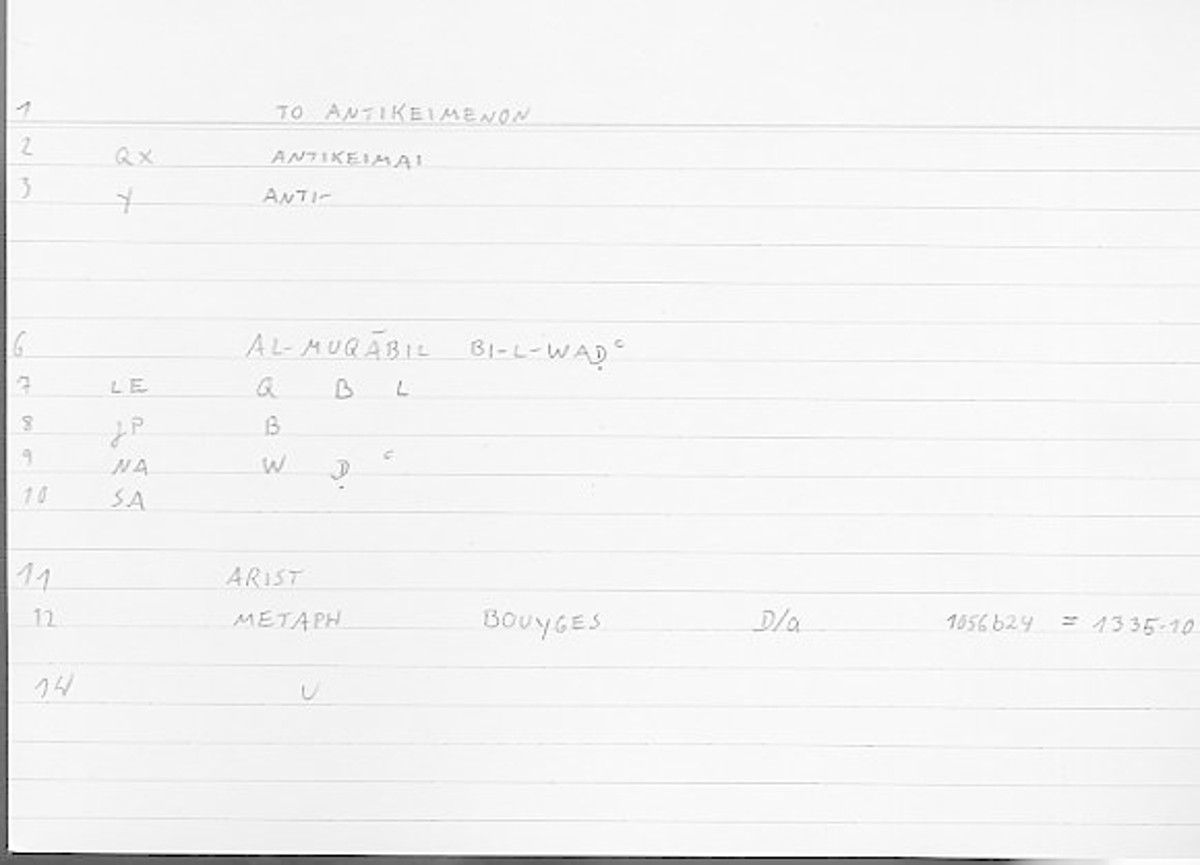 1 TO ANTIKEIMENON
2 QX ANTIKEIMAI
3 Y ANTI-
6 AL-MUQĀBIL BI-L-WAḌᶜ
7 LE Q B L
8 JP B
9 NA W Ḍ ᶜ
10 SA
11 ARIST
12 METAPH BOUYGES D/a 1056b24 = 1335.10
14 U